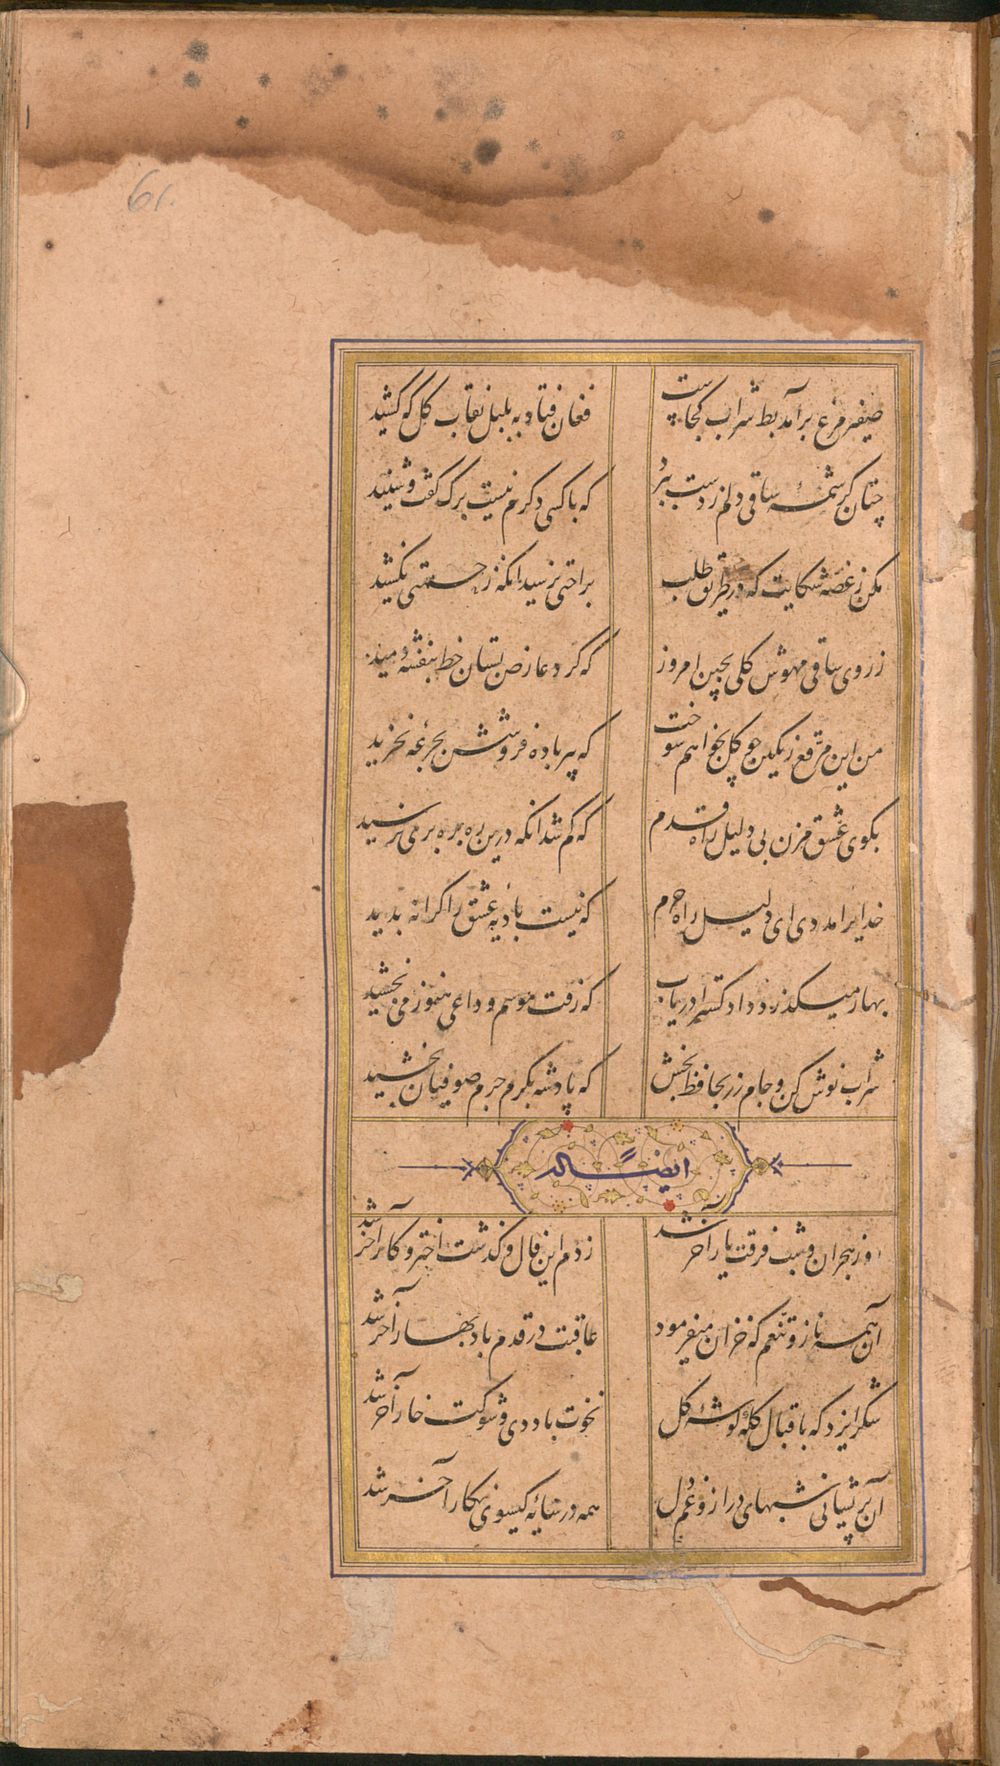 61
صفیر مرغ برآمد بط شراب کجاست فغان فتاد به بلبل نقاب گل که کشید
چنان کرشمهٔ ساقی دلم ز دست ببرد که با کسی دگرم نیست برگ گفت و شنید
مکن ز غصه شکایت که در طریق طلب براحتی نرسید انکه زحمتی نکشید
ز روی ساقی مهوش کلی بچین امروز که کرد عارض بستان خط بنفشه دمید
من این مرقع رنکین چو کل بخواهم سوخت که پیر باده فروشش بجرعهٔ نخرید
بکوی عشق مزن بی دلیل راه قدم که کم شد انکه درین ره برهبری نرسید
خدایرا مددی ای دلیل راه حرم که نیست بادیهٔ عشق را کرانه پدید
بهار میکذرد دادکسترا دریاب که رفت موسم و داعی هنوز می نچشید
شراب نوش کن و جام زر بحافظ بخش که پادشه بکرم جرم صوفیان بخشید
ایضاً له
روز هجران و شب فرقت یار آخر شد زدم این فال و گذشت اختر و کار آخر شد
آن همه ناز و تنعم که خزان میفرمود عاقبت در قدم باد بهار آخر شد
شکر ایزد که باقبال کله کوشهٔ کل نخوت باد دی و شوکت خار آخر شد
آن پریشانی شبهای دراز و غم دل همه در سایهٔ کیسوی نکار آخر شد